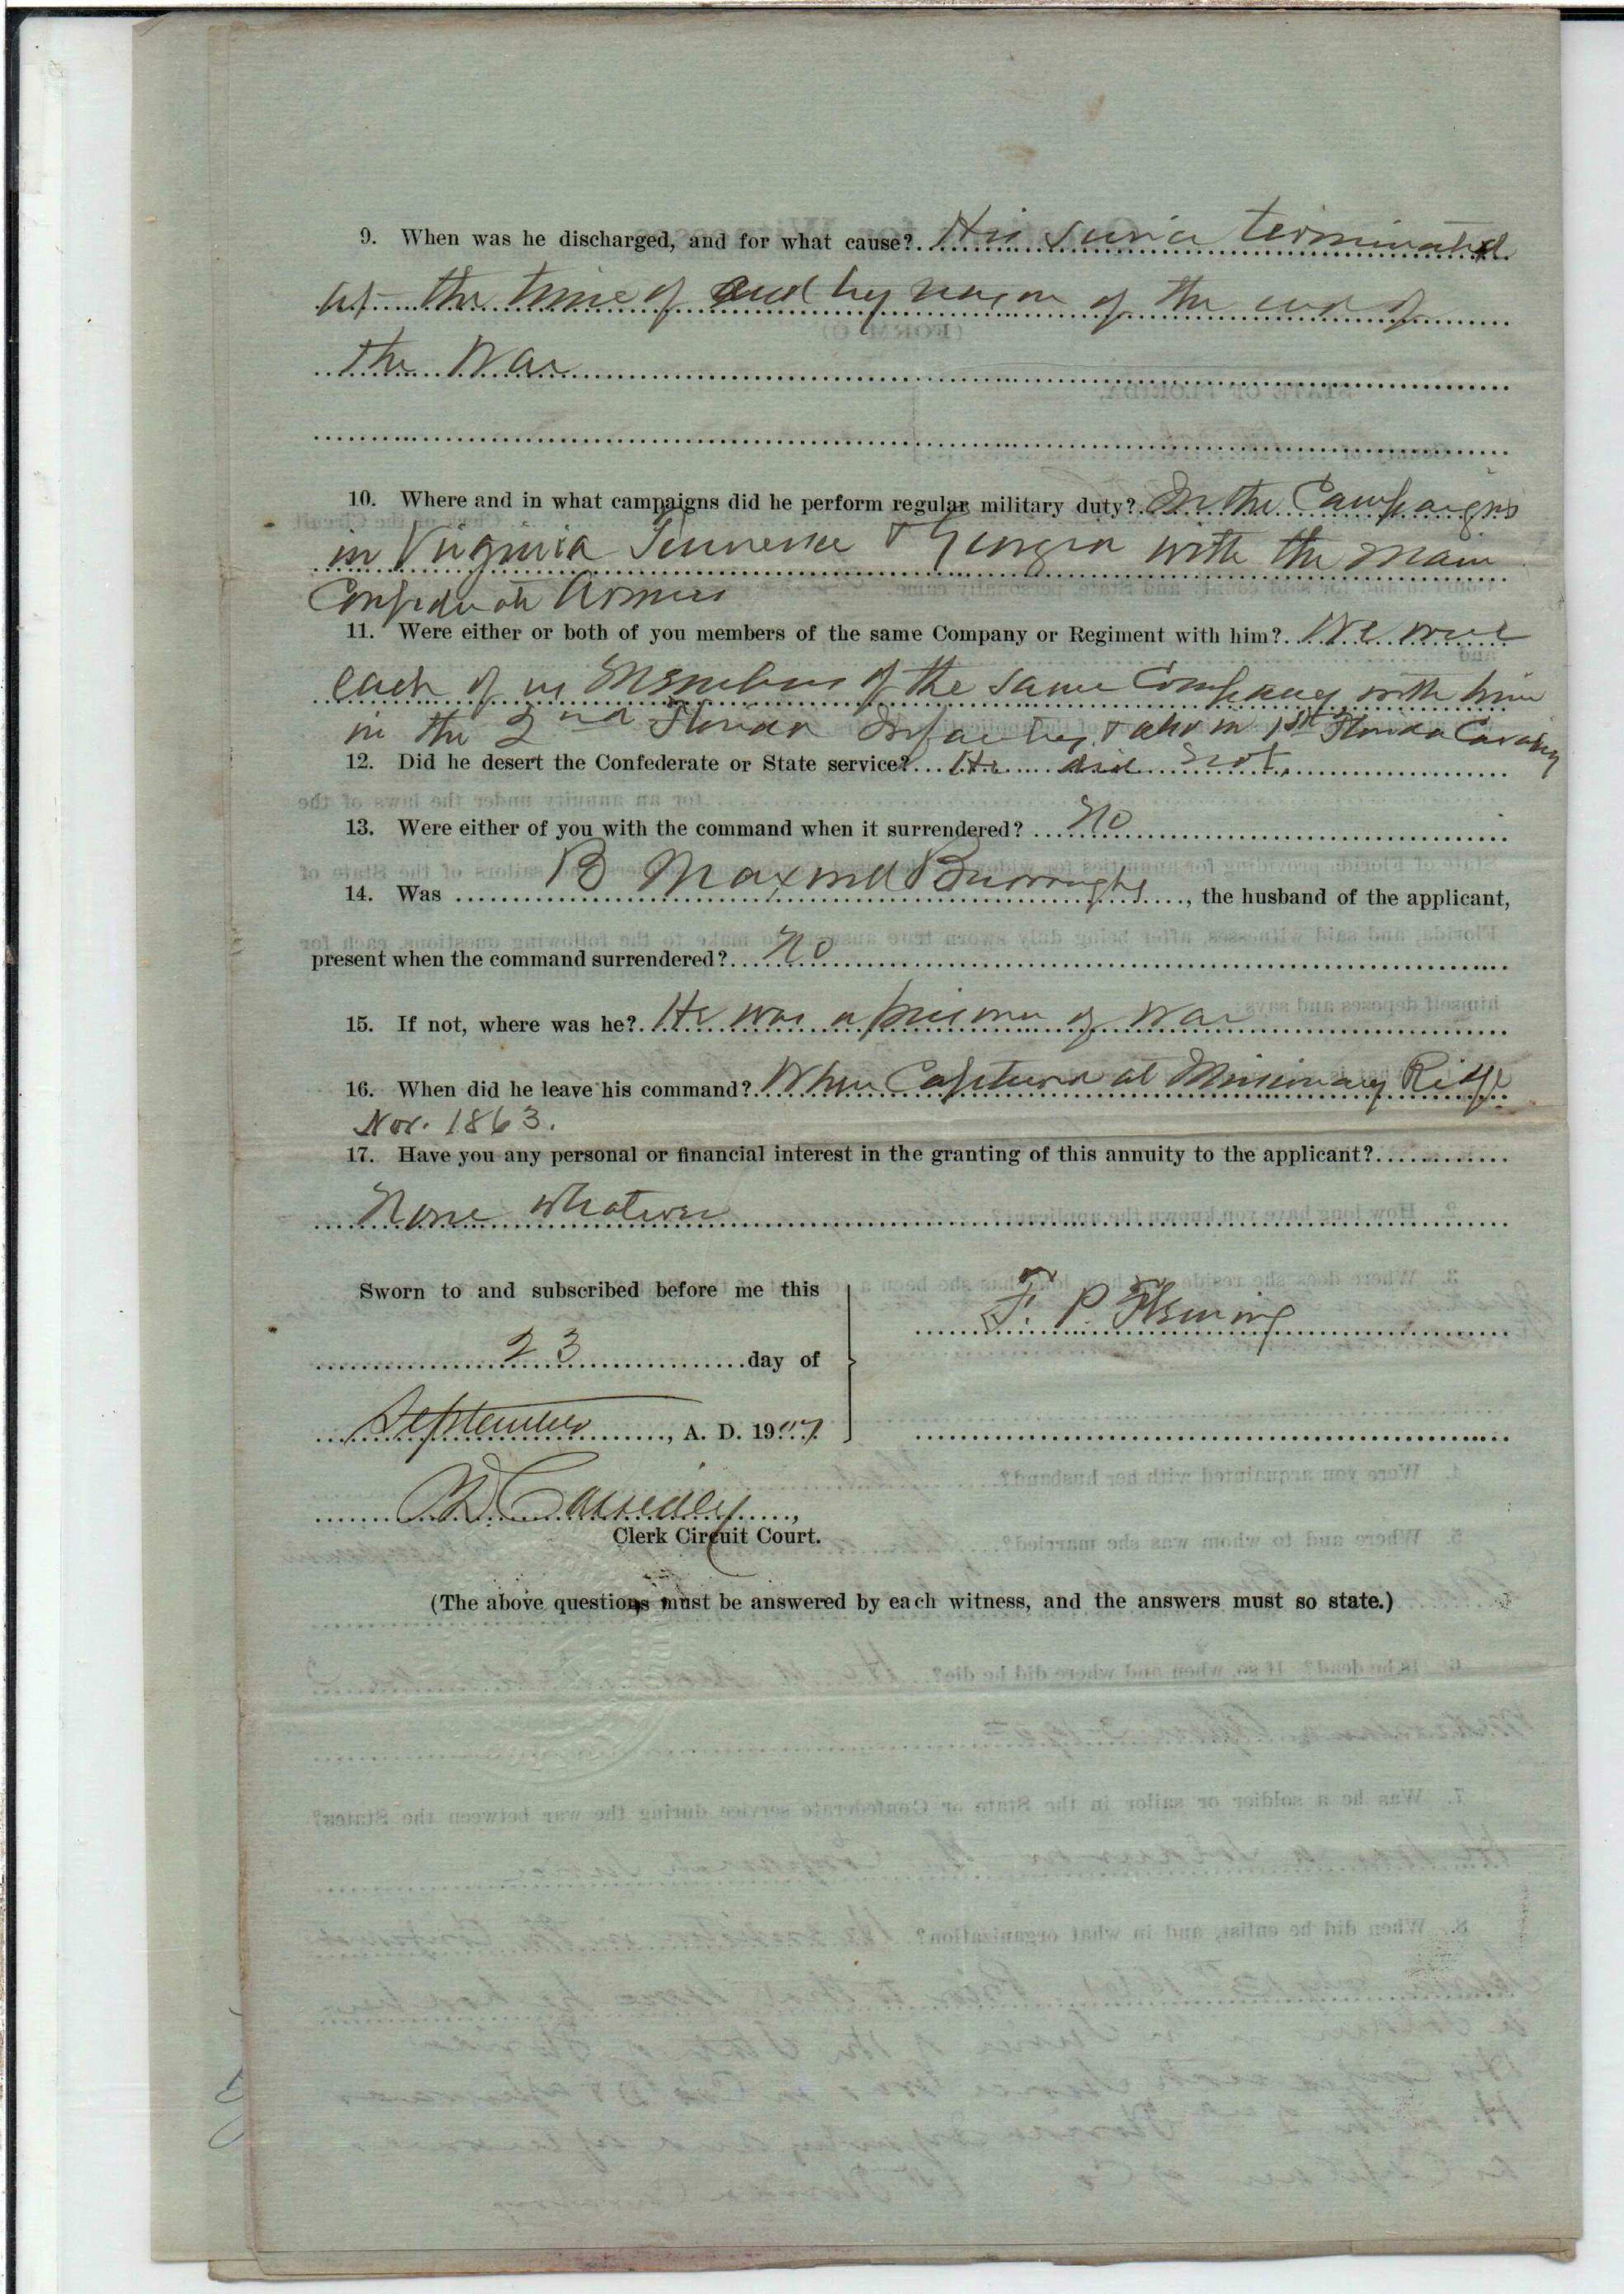 9. When was he discharged, and for what cause? His service terminated
at the time of and by reason of the end of
the War
10. Where and in what campaigns did he perform regular military duty? In the Campaigns
in Virginia Tennessee & Georgia with the main
Confederate Armies
11. Were either or both of you members of the same Company or Regiment with him? We were
each of us members of the same Company with him
in the 2nd Florida Infantry, & also in 1st Florida Cavalry
12. Did he desert the Confederate or State service? He did not.
13. Were either of you with the command when it surrendered? No
14. Was B Maxwell Burroughs, the husband of the applicant,
present when the command surrendered? No
15. If not, where was he? He was a prisoner of war
16. When did he leave his command? When Captured at Missionary Ridge
Nov. 1863.
17. Have you any personal or financial interest in the granting of this annuity to the applicant?
None whatever
Sworn to and subscribed before me this
23 day of
September, A. D. 1907
F. P. Fleming
Cassidey
Clerk Circuit Court.
(The above questions must be answered by each witness, and the answers must so state.)